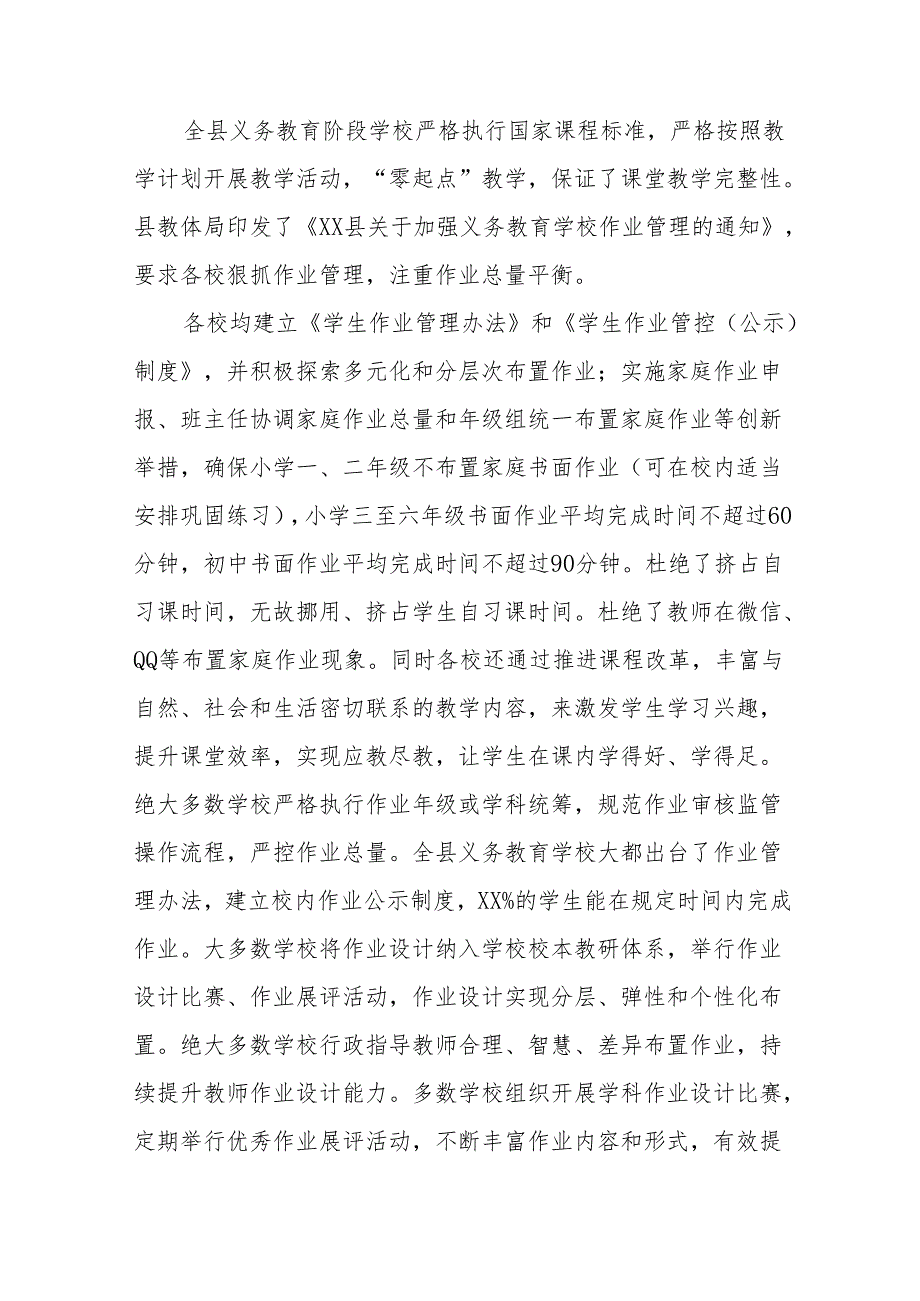 全县义务教育阶段学校严格执行国家课程标准，严格按照教
学计划开展教学活动，“零起点”教学，保证了课堂教学完整性。
县教体局印发了《XX县关于加强义务教育学校作业管理的通知》，
要求各校狠抓作业管理，注重作业总量平衡。
各校均建立《学生作业管理办法》和《学生作业管控（公示）
制度》，并积极探索多元化和分层次布置作业；实施家庭作业申
报、班主任协调家庭作业总量和年级组统一布置家庭作业等创新
举措，确保小学一、二年级不布置家庭书面作业（可在校内适当
安排巩固练习），小学三至六年级书面作业平均完成时间不超过60
分钟，初中书面作业平均完成时间不超过90分钟。杜绝了挤占自
习课时间，无故挪用、挤占学生自习课时间。杜绝了教师在微信、
QQ等布置家庭作业现象。同时各校还通过推进课程改革，丰富与
自然、社会和生活密切联系的教学内容，来激发学生学习兴趣，
提升课堂效率，实现应教尽教，让学生在课内学得好、学得足。
绝大多数学校严格执行作业年级或学科统筹，规范作业审核监管
操作流程，严控作业总量。全县义务教育学校大都出台了作业管
理办法，建立校内作业公示制度，XX%的学生能在规定时间内完成
作业。大多数学校将作业设计纳入学校校本教研体系，举行作业
设计比赛、作业展评活动，作业设计实现分层、弹性和个性化布
置。绝大多数学校行政指导教师合理、智慧、差异布置作业，持
续提升教师作业设计能力。多数学校组织开展学科作业设计比赛，
定期举行优秀作业展评活动，不断丰富作业内容和形式，有效提